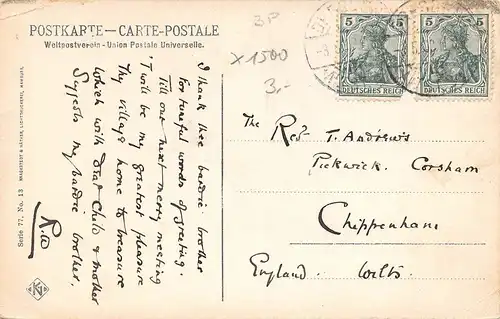 POSTKARTE — CARTE-POSTALE
Weltpostverein - Union Postale Universelle.
3P
X1500
3.-
5 5
DEUTSCHES REICH
5 5
DEUTSCHES REICH
I thank thee bardie brother
For tuneful words of greeting.
Till our next merry meeting
'T will be my greatest pleasure
Thy village home to treasure
Which with that Child & mother
Suggests my bardie brother.
R.W
The Revd T. Andrews
Pickwick. Corsham
Chippenham
England. Wilts.
Serie 77, No. 13
KN